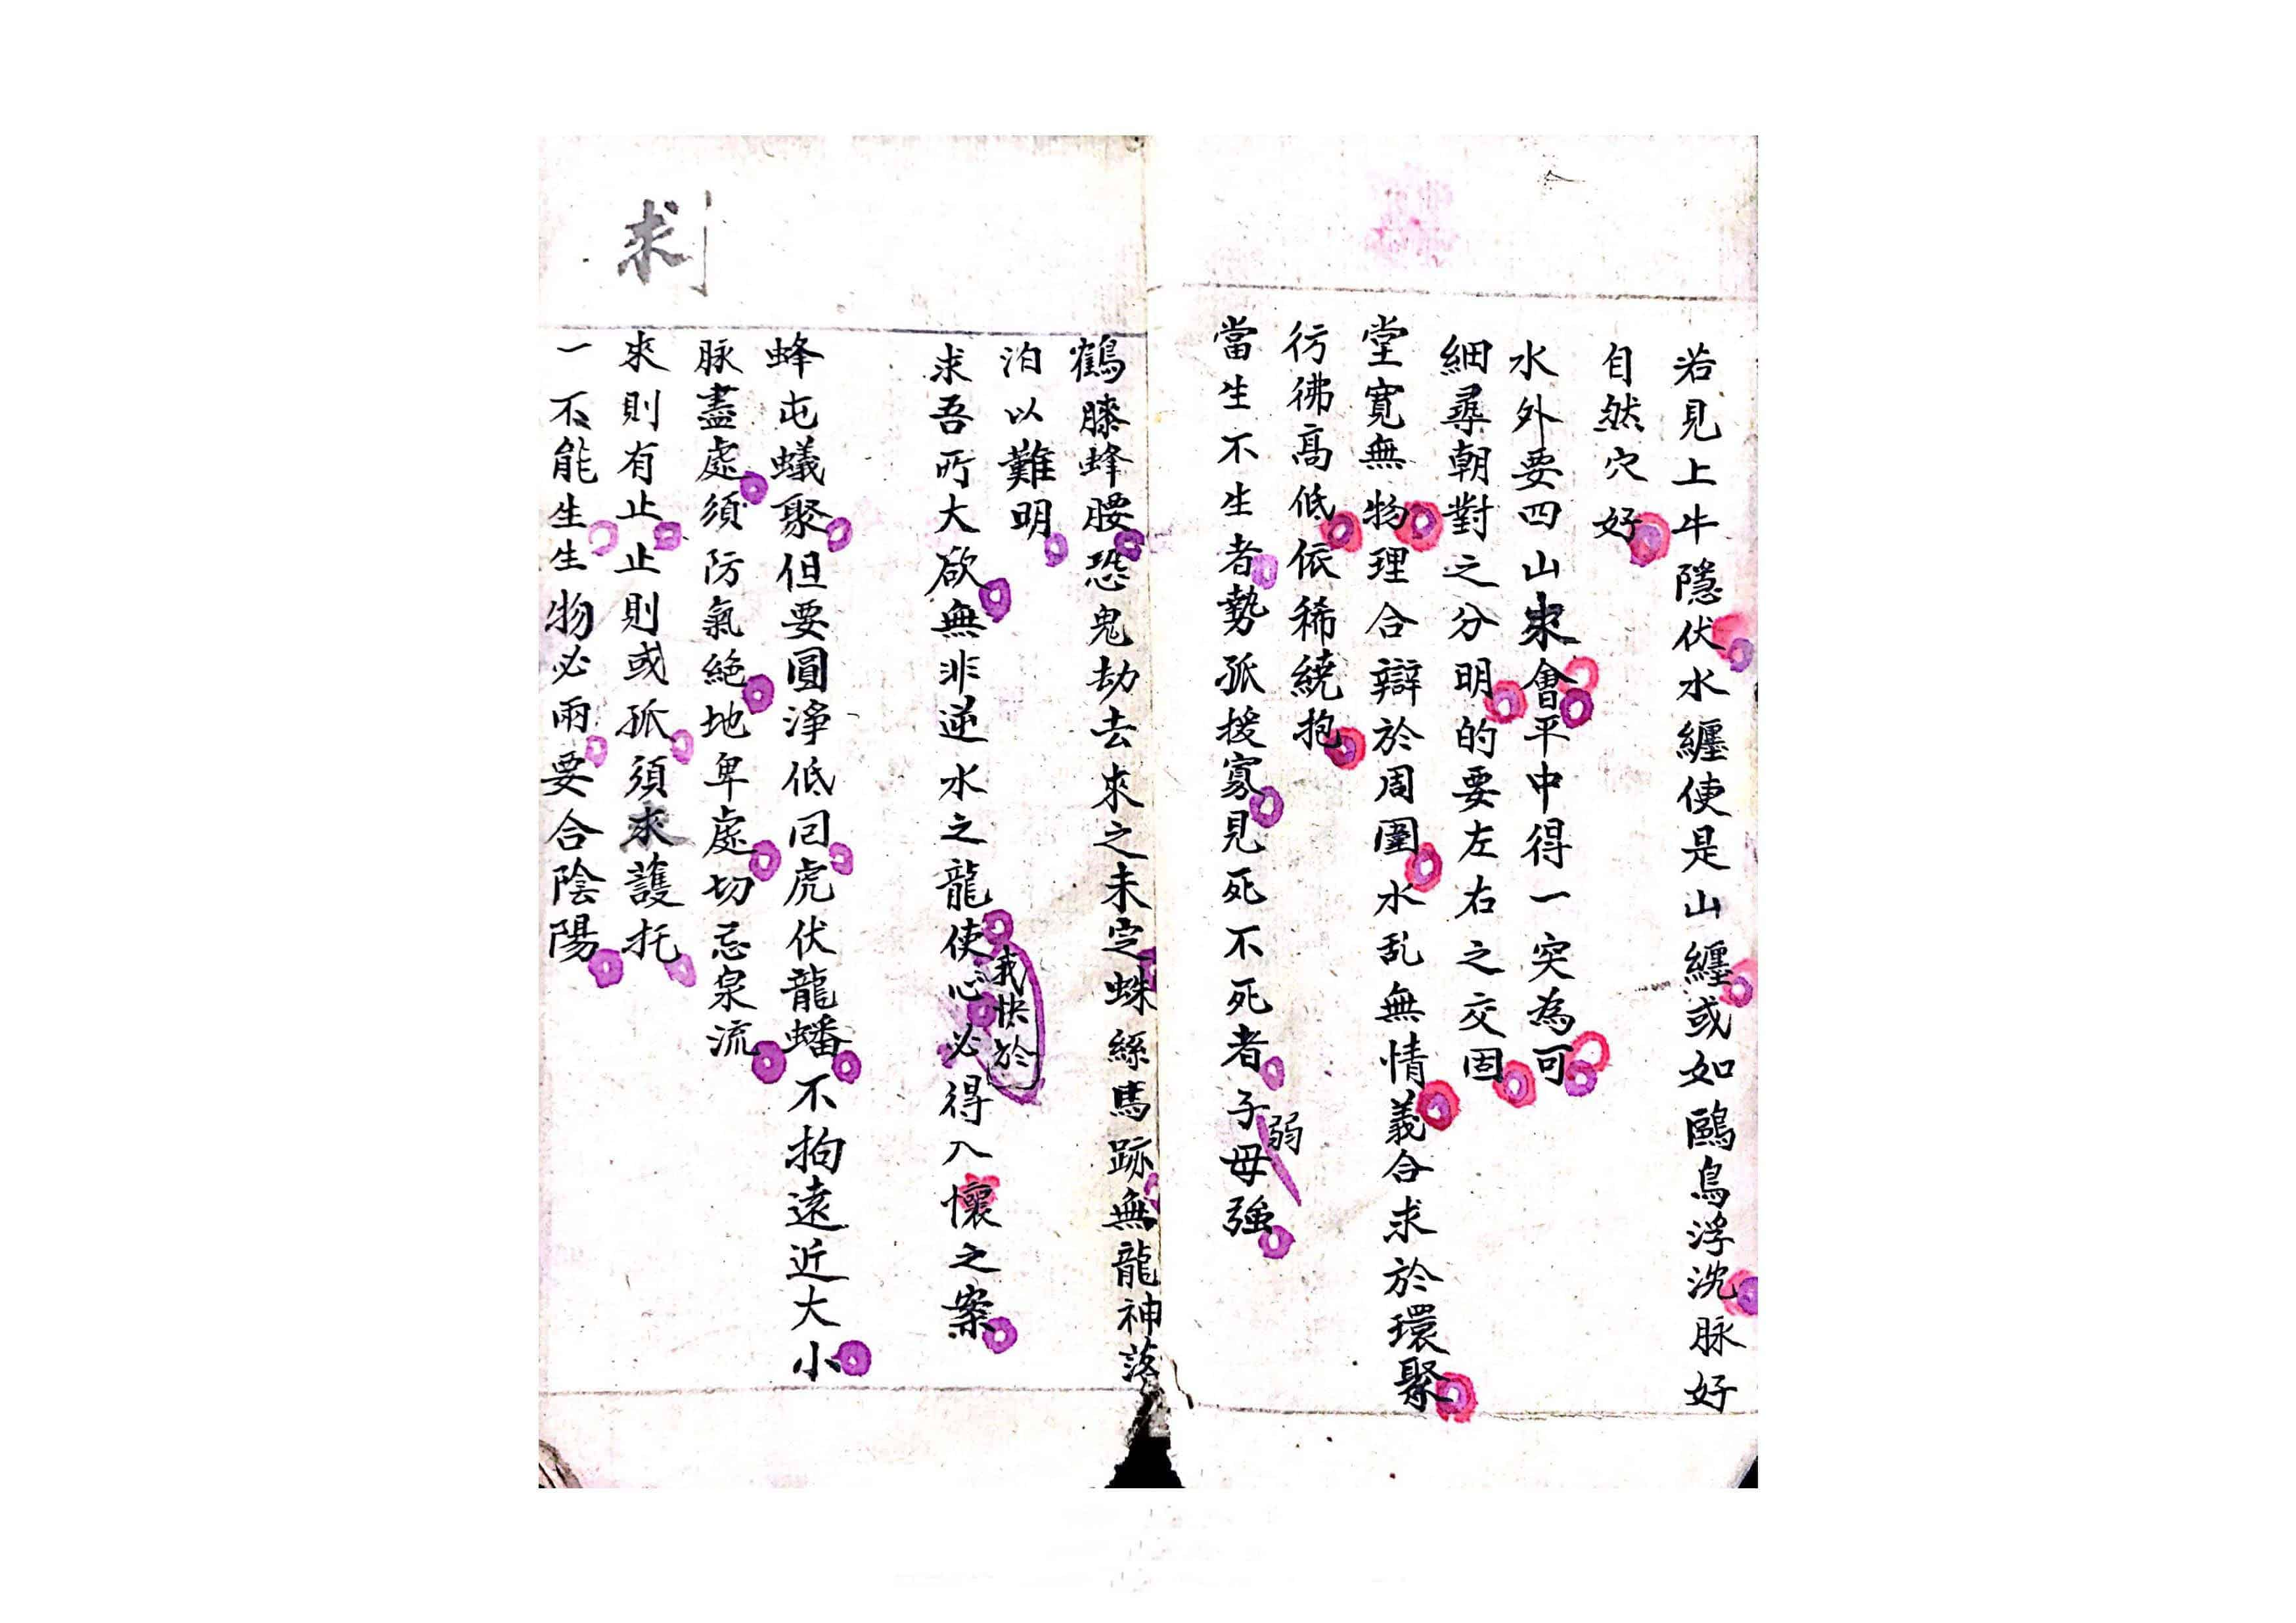 若見上牛隱伏水纏使是山纏或如鷗鳥浮沈脉好
自然穴好
水外要四山來會平中得一突為可
細尋朝對之分明的要左右之交固
堂寬無物理合辯於周圍水乱無情義合求於環聚
彷彿高低依稀繞抱
當生不生者勢孤援寡見死不死者子母強
弱
鶴膝蜂腰恐鬼劫去來之未定蛛絲馬跡無龍神落
泊以難明
求吾所大欲無非逆水之龍使心必得入懷之案
我快於
蜂屯蟻聚但要圓淨低回虎伏龍蟠不拘遠近大小
脉盡處須防氣絕地卑處切忌泉流
來則有止止則或孤須求護托
一不能生生物必兩要合陰陽
求